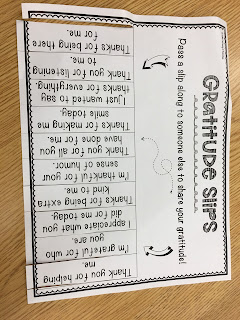 GRATITUDE SLIPS
Pass a slip along to someone else to share your gratitude!
Thank you for helping
me.
I'm grateful for who
you are.
I appreciate what you
did for me today.
Thanks for being extra
kind to me.
I'm thankful for your
sense of humor.
Thank you for all you
have done for me.
Thanks for making me
smile today.
I just wanted to say
thanks for everything.
Thank you for listening
to me.
Thanks for being there
for me.